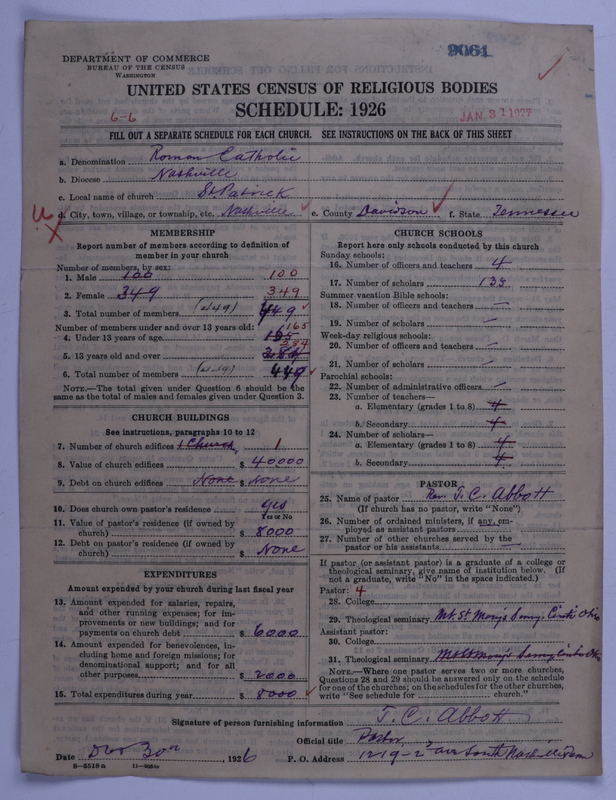 9061
DEPARTMENT OF COMMERCE
BUREAU OF THE CENSUS
WASHINGTON
UNITED STATES CENSUS OF RELIGIOUS BODIES
SCHEDULE: 1926
6-6
JAN 31 1927
FILL OUT A SEPARATE SCHEDULE FOR EACH CHURCH. SEE INSTRUCTIONS ON THE BACK OF THIS SHEET
a. Denomination Roman Catholic
b. Diocese Nashville
c. Local name of church St Patrick
d. City, town, village, or township, etc. Nashville e. County Davidson f. State Tennessee
MEMBERSHIP
Report number of members according to definition of
member in your church
Number of members, by sex:
1. Male 100 100
2. Female 349 349
3. Total number of members (449) 449
Number of members under and over 13 years old:
4. Under 13 years of age 165
5. 13 years old and over 284
6. Total number of members (449) 449
NOTE.—The total given under Question 6 should be the
same as the total of males and females given under Question 3.
CHURCH BUILDINGS
See instructions, paragraphs 10 to 12
7. Number of church edifices 1 Church 1
8. Value of church edifices $ 40000
9. Debt on church edifices None $ None
10. Does church own pastor's residence yes
Yes or No
11. Value of pastor's residence (if owned by
church) $ 8000
12. Debt on pastor's residence (if owned by
church) $ None
EXPENDITURES
Amount expended by your church during last fiscal year
13. Amount expended for salaries, repairs,
and other running expenses; for im-
provements or new buildings; and for
payments on church debt $ 6000
14. Amount expended for benevolences, in-
cluding home and foreign missions; for
denominational support; and for all
other purposes $ 2000
15. Total expenditures during year $ 8000
CHURCH SCHOOLS
Report here only schools conducted by this church
Sunday schools:
16. Number of officers and teachers 4
17. Number of scholars 135
Summer vacation Bible schools:
18. Number of officers and teachers —
19. Number of scholars —
Week-day religious schools:
20. Number of officers and teachers —
21. Number of scholars —
Parochial schools:
22. Number of administrative officers —
23. Number of teachers—
a. Elementary (grades 1 to 8) 4
b. Secondary 4
24. Number of scholars—
a. Elementary (grades 1 to 8) 4
b. Secondary 4
PASTOR
25. Name of pastor Rev. J. C. Abbott
(If church has no pastor, write "None")
26. Number of ordained ministers, if any, em-
ployed as assistant pastors
27. Number of other churches served by the
pastor or his assistants —
If pastor (or assistant pastor) is a graduate of a college or
theological seminary, give name of institution below. (If
not a graduate, write "No" in the space indicated.)
Pastor: 4
28. College
29. Theological seminary Mt. St Mary's Semy, Cinti Ohio
Assistant pastor:
30. College
31. Theological seminary Mt St Mary's Semy Cinti Ohio
NOTE.—Where one pastor serves two or more churches,
Questions 28 and 29 should be answered only on the schedule
for one of the churches; on the schedules for the other churches,
write "See schedule for church."
Signature of person furnishing information J. C. Abbott
Official title Pastor
Date 30 1926 P. O. Address 1219-2 ave South Nashville Tenn
8—5518 a